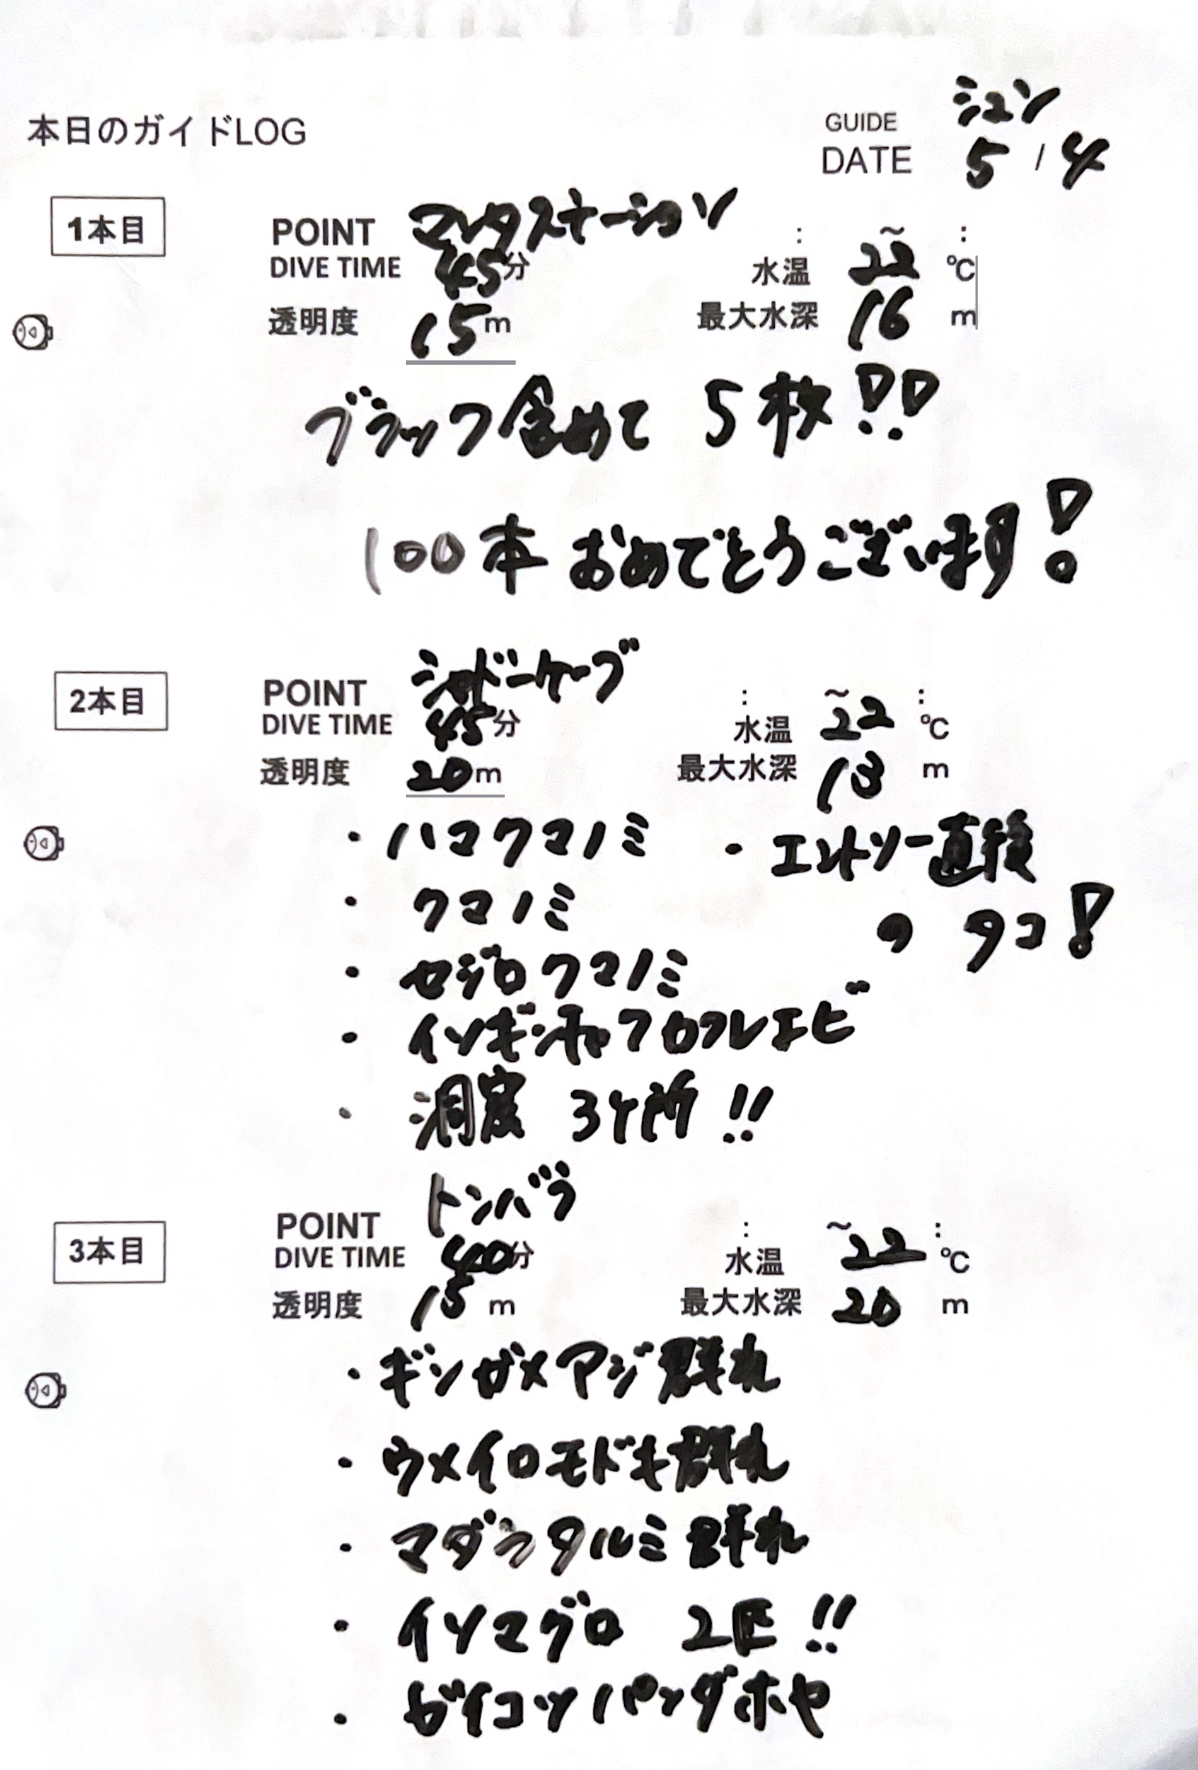 本日のガイドLOG
GUIDE シュン
DATE 5/4
1本目
POINT マンタステーション : ～ :
DIVE TIME 45分 水温 22 ℃
透明度 15m 最大水深 16 m
ブラック含めて 5枚!!
100本 おめでとうございます!
2本目
POINT シャドーケーブ : ～ :
DIVE TIME 45分 水温 22 ℃
透明度 20m 最大水深 13 m
・ハマクマノミ ・エントリー直後
・クマノミ のタコ!
・セジロクマノミ
・イソギンチャクカクレエビ
・洞窟 3ヶ所!!
3本目
POINT トンバラ : ～ :
DIVE TIME 40分 水温 22 ℃
透明度 15 m 最大水深 20 m
・ギンガメアジ群れ
・ウメイロモドキ群れ
・マダラタルミ群れ
・イソマグロ 2匹!!
・ガイコツパンダホヤ